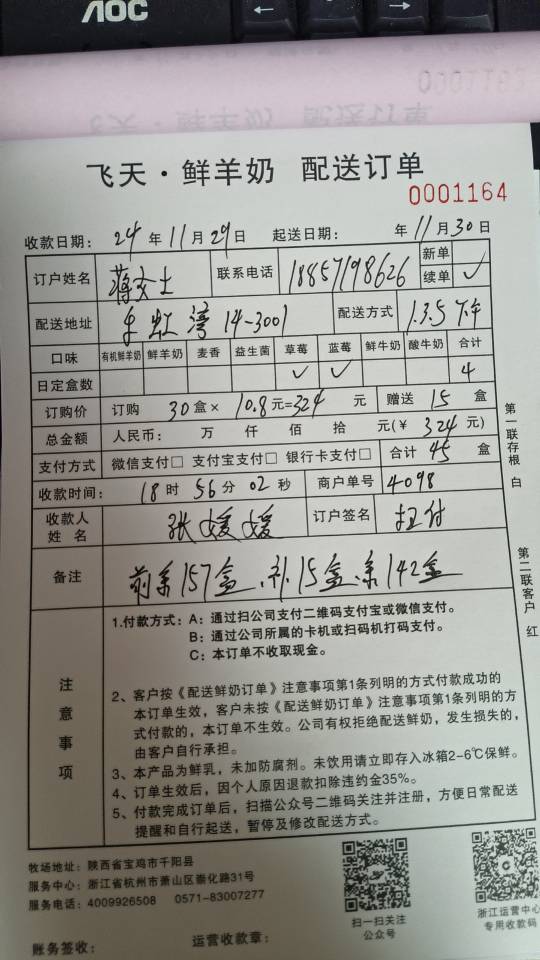 AOC
飞天·鲜羊奶 配送订单
0001164
收款日期: 24 年 11 月 29 日 起送日期: 年 11 月 30 日
订户姓名 蒋女士 联系电话 18857198626 新单
续单 ✓
配送地址 虹湾 14-3001 配送方式 1.3.5 下午
口味 有机鲜羊奶 鲜羊奶 麦香 益生菌 草莓 蓝莓 鲜牛奶 酸牛奶 合计
日定盒数 ✓ ✓ 4
订购价 订购 30 盒× 10.8 元=324 元 赠送 15 盒
总金额 人民币: 万 仟 佰 拾 元(¥ 324 元)
支付方式 微信支付□ 支付宝支付□ 银行卡支付□ 合计 45 盒
收款时间: 18 时 56 分 02 秒 商户单号 4098
收款人姓名 张媛媛 订户签名 扫付
备注 前余157盒、补15盒、余142盒
注意事项
1.付款方式: A: 通过扫公司支付二维码支付宝或微信支付。
B: 通过公司所属的卡机或扫码机打码支付。
C: 本订单不收取现金。
2、客户按《配送鲜奶订单》注意事项第1条列明的方式付款成功的
本订单生效，客户未按《配送鲜奶订单》注意事项第1条列明的方
式付款的，本订单不生效。公司有权拒绝配送鲜奶，发生损失的，
由客户自行承担。
3、本产品为鲜乳，未加防腐剂。未饮用请立即存入冰箱2-6℃保鲜。
4、订单生效后，因个人原因退款扣除违约金35%。
5、付款完成订单后，扫描公众号二维码关注并注册，方便日常配送
提醒和自行起送，暂停及修改配送方式。
第一联存根 白
第二联客户 红
牧场地址: 陕西省宝鸡市千阳县
服务中心: 浙江省杭州市萧山区崇化路31号
服务电话: 4009926508 0571-83007277
扫一扫关注
公众号
浙江运营中心
专用收款码
账务签收: 运营收款章: